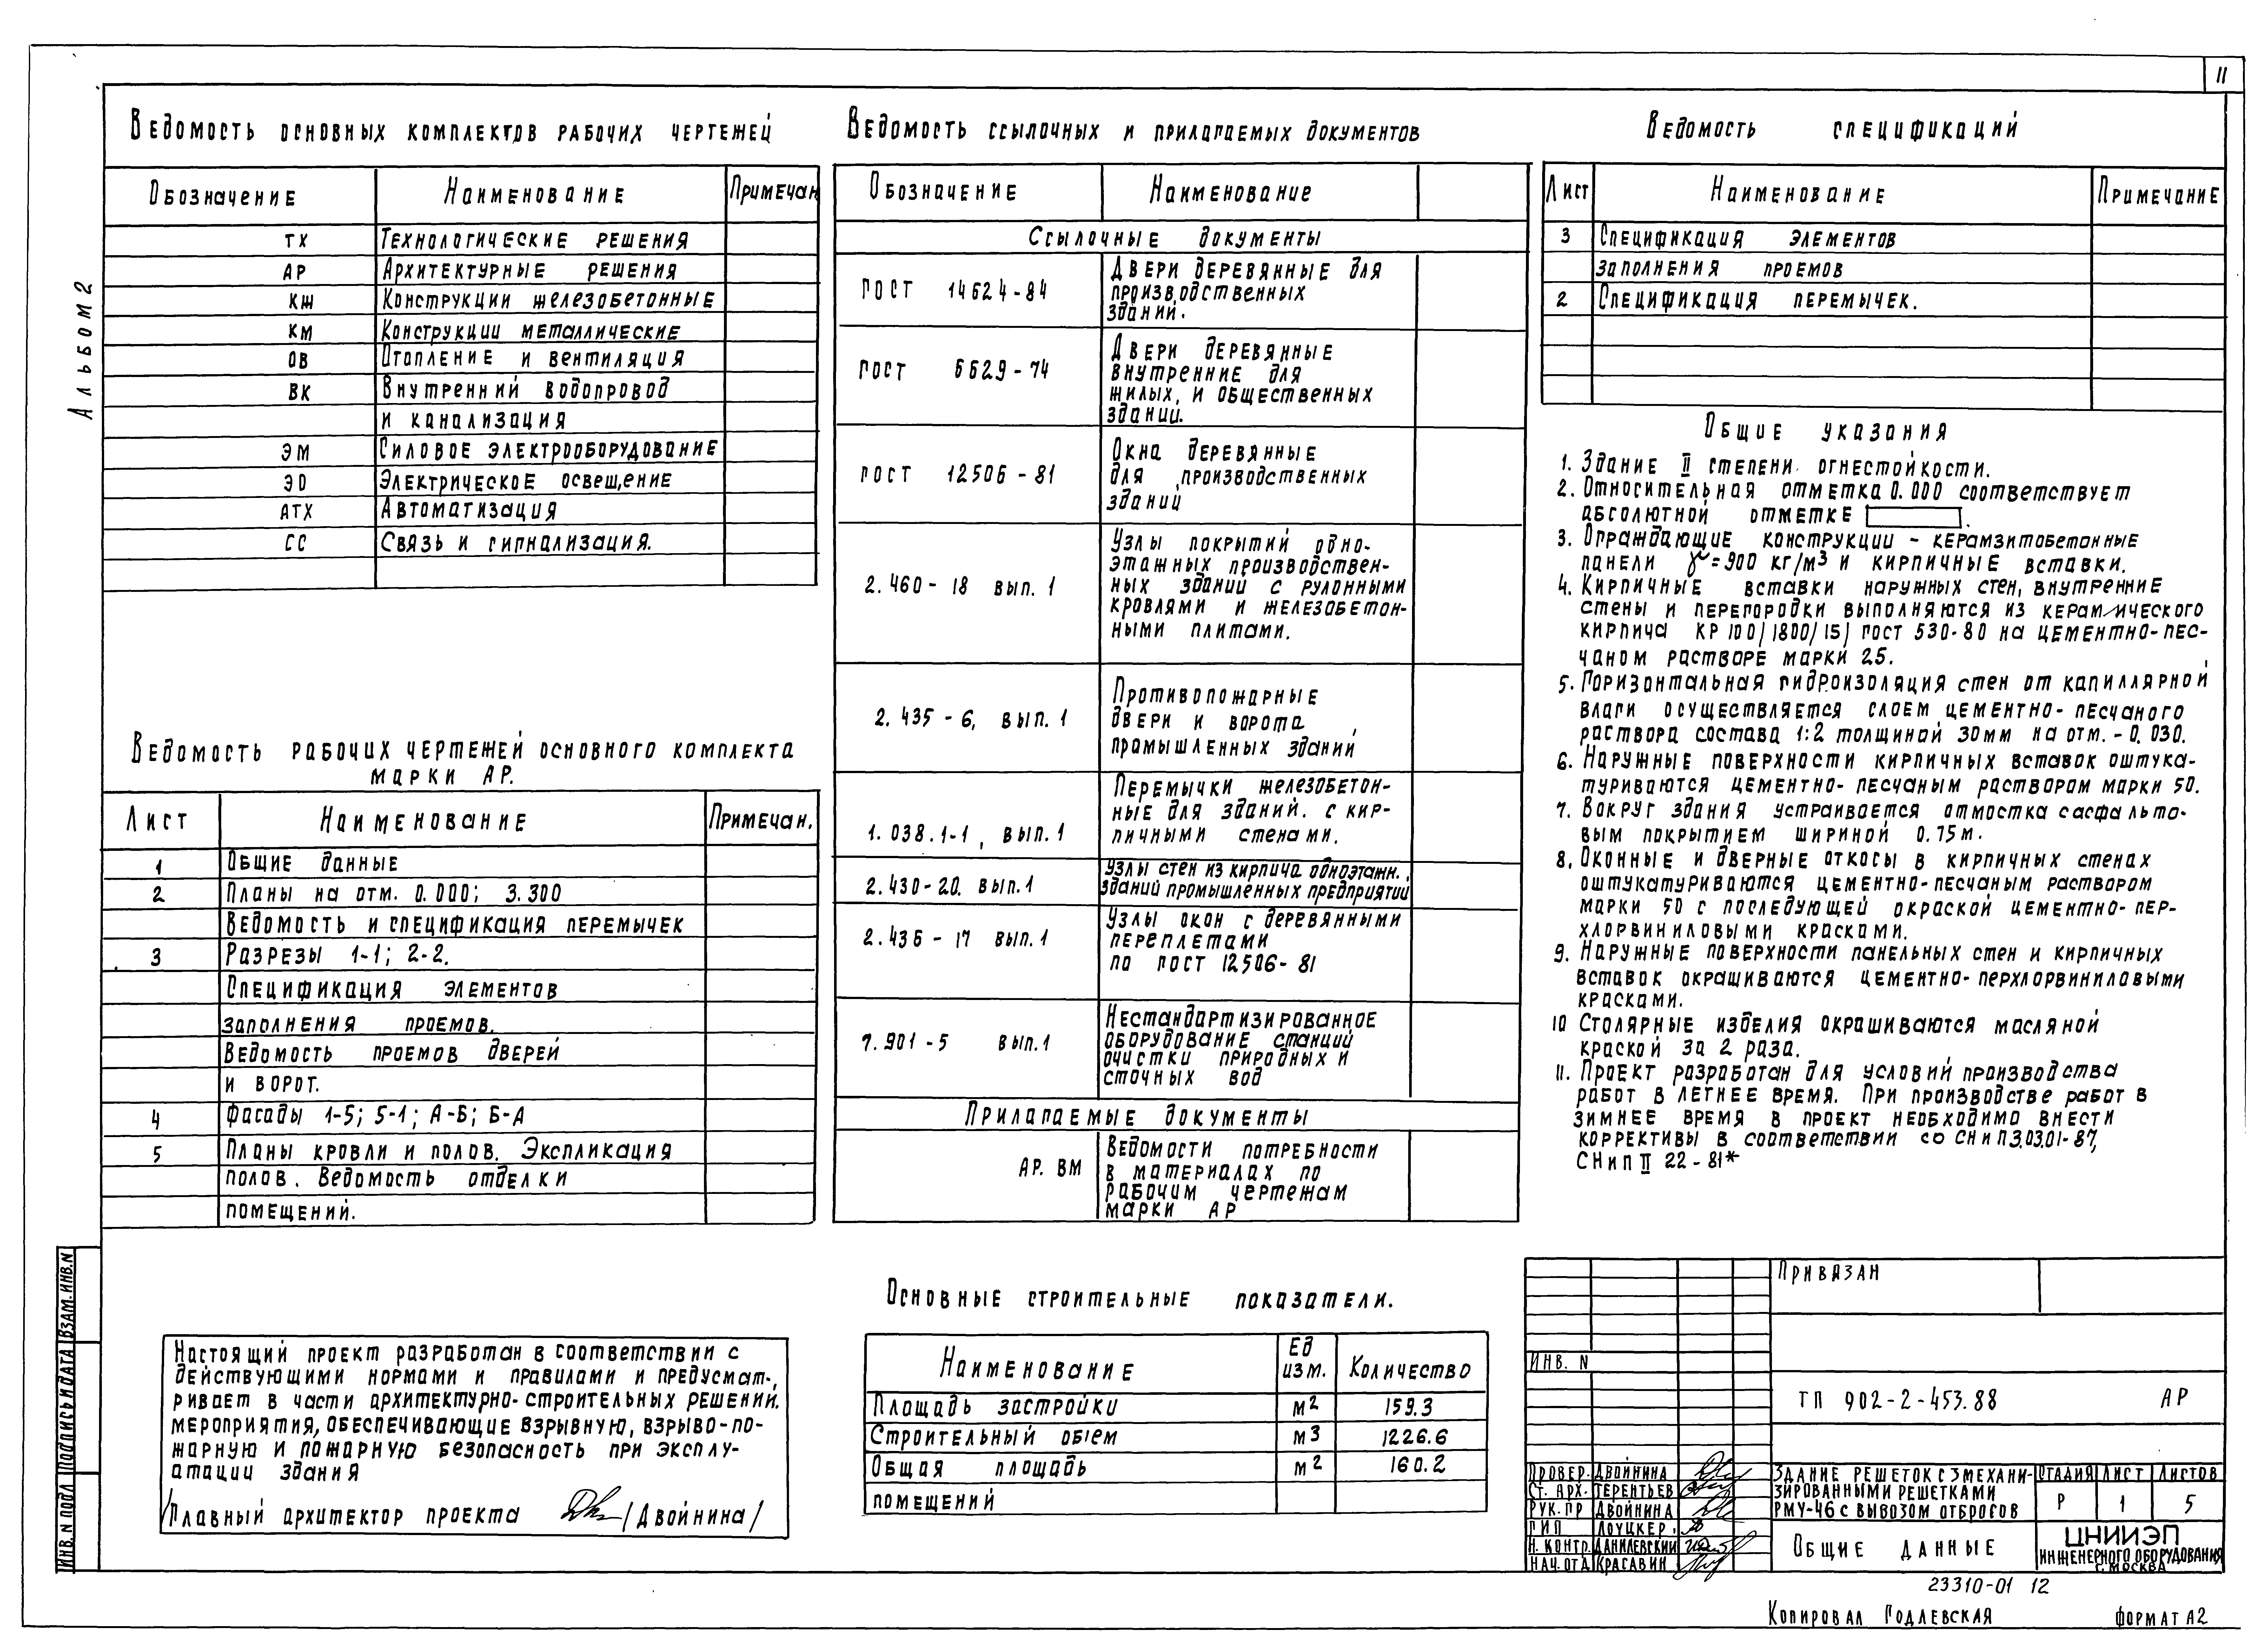 11
Альбом 2
Ведомость основных комплектов рабочих чертежей
Обозначение Наименование Примечан.
ТХ Технологические решения
АР Архитектурные решения
КЖ Конструкции железобетонные
КМ Конструкции металлические
ОВ Отопление и вентиляция
ВК Внутренний водопровод
и канализация
ЭМ Силовое электрооборудование
ЭО Электрическое освещение
АТХ Автоматизация
СС Связь и сигнализация.
Ведомость рабочих чертежей основного комплекта
марки АР.
Лист Наименование Примечан.
1 Общие данные
2 Планы на отм. 0.000; 3.300
Ведомость и спецификация перемычек
3 Разрезы 1-1; 2-2.
Спецификация элементов
заполнения проемов.
Ведомость проемов дверей
и ворот.
4 Фасады 1-5; 5-1; А-Б; Б-А
5 Планы кровли и полов. Экспликация
полов. Ведомость отделки
помещений.
Настоящий проект разработан в соответствии с
действующими нормами и правилами и предусмат-
ривает в части архитектурно-строительных решений.
мероприятия, обеспечивающие взрывную, взрыво-по-
жарную и пожарную безопасность при эксплу-
атации здания
Главный архитектор проекта /Двойнина/
Ведомость ссылочных и прилагаемых документов
Обозначение Наименование
Ссылочные документы
ГОСТ 14624-84 Двери деревянные для
производственных
зданий.
ГОСТ 6629-74 Двери деревянные
внутренние для
жилых, и общественных
зданий.
ГОСТ 12506-81 Окна деревянные
для производственных
зданий
2.460-18 вып. 1 Узлы покрытий одно-
этажных производствен-
ных зданий с рулонными
кровлями и железобетон-
ными плитами.
2.435-6, вып. 1 Противопожарные
двери и ворота
промышленных зданий
1.038.1-1, вып. 1 Перемычки железобетон-
ные для зданий. с кир-
пичными стенами.
2.430-20. вып. 1 Узлы стен из кирпича одноэтажн.
зданий промышленных предприятий
2.436-17 вып. 1 Узлы окон с деревянными
переплетами
по гост 12506-81
7.901-5 вып. 1 Нестандартизированное
оборудование станций
очистки природных и
сточных вод
Прилагаемые документы
АР. ВМ Ведомости потребности
в материалах по
рабочим чертежам
марки АР
Основные строительные показатели.
Наименование Ед изм. Количество
Площадь застройки м2 159.3
Строительный объем м3 1226.6
Общая площадь м2 160.2
помещений
Ведомость спецификаций
Лист Наименование Примечание
3 Спецификация элементов
заполнения проемов
2 Спецификация перемычек.
Общие указания
1. Здание II степени огнестойкости.
2. Относительная отметка 0.000 соответствует
абсолютной отметке .
3. Ограждающие конструкции – керамзитобетонные
панели γ=900 кг/м3 и кирпичные вставки.
4. Кирпичные вставки наружных стен, внутренние
стены и перегородки выполняются из керамического
кирпича КР 100/1800/15/ гост 530-80 на цементно-пес-
чаном растворе марки 25.
5. Горизонтальная гидроизоляция стен от капиллярной
влаги осуществляется слоем цементно-песчаного
раствора состава 1:2 толщиной 30мм на отм. -0.030.
6. Наружные поверхности кирпичных вставок оштука-
туриваются цементно-песчаным раствором марки 50.
7. Вокруг здания устраивается отмостка с асфальто-
вым покрытием шириной 0.75м.
8. Оконные и дверные откосы в кирпичных стенах
оштукатуриваются цементно-песчаным раствором
марки 50 с последующей окраской цементно-пер-
хлорвиниловыми красками.
9. Наружные поверхности панельных стен и кирпичных
вставок окрашиваются цементно-перхлорвиниловыми
красками.
10 Столярные изделия окрашиваются масляной
краской за 2 раза.
11. Проект разработан для условий производства
работ в летнее время. При производстве работ в
зимнее время в проект необходимо внести
коррективы в соответствии со СНиП3.03.01-87,
СНиП II 22-81*
Привязан
Инв. N
ТП 902-2-453.88 АР
Провер. Двойнина
Ст. арх. Терентьев
Рук. пр Двойнина
ГИП Лоуцкер
Н. контр. Данилевский
Нач. отд. Красавин
Здание решеток с 3 механи-
зированными решетками
РМУ-4б с вывозом отбросов
Стадия Лист Листов
Р 1 5
Общие данные
ЦНИИЭП
инженерного оборудования
г. Москва
23310-01 12
Копировал Годлевская формат А2
Инв. N подл Подпись и дата Взам. инв. N